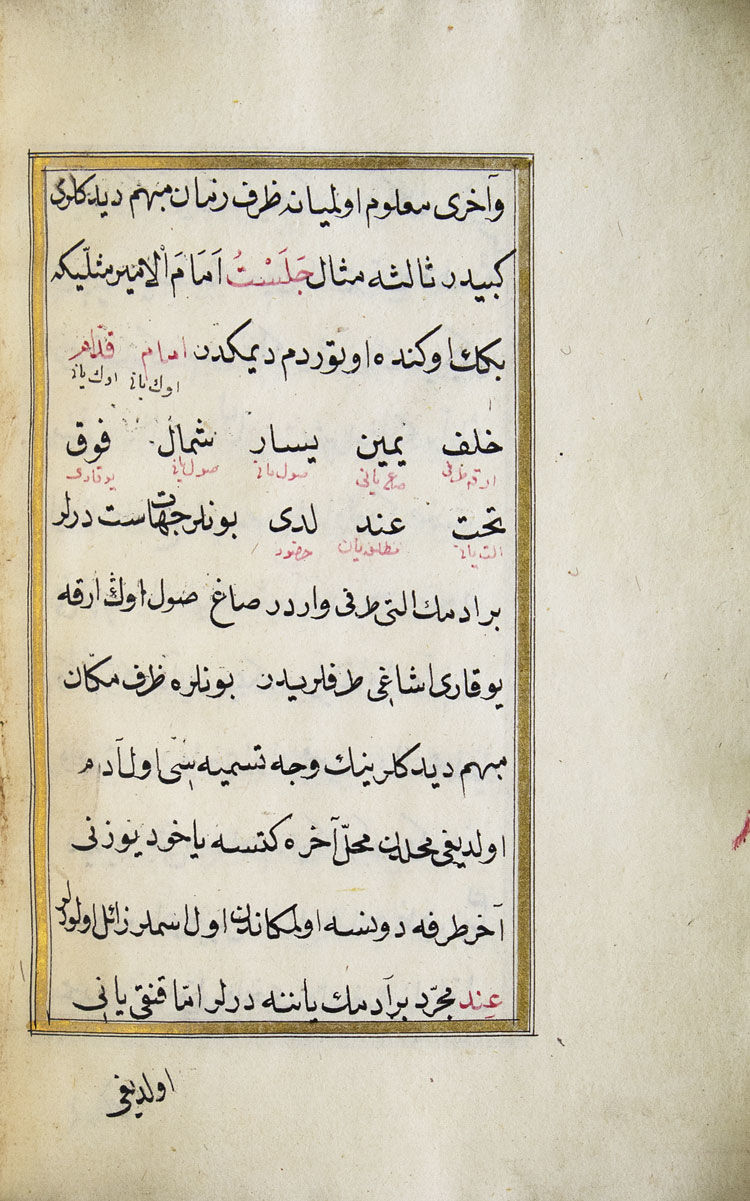 وآخری معلوم اولمیانه ظرف زمان مبهم دیدکلری
کبیدر ثالثه مثال جَلَسْتُ اَمَامَ الْامیر مثلیکه
بکك اوکنده اوتوردم دیمکدر امام قدام
اوك یانی اوك یانی
خلف یمین یسار شمال فوق
ارقه طرفی صاغ یانی صول یانی صول یانی یوقاری
تحت عند لدی بونلر جهات ست درلر
الت یانی مطلق یان حضور
بر ادمك التی طرفی واردر صاغ صول اوڭ ارقه
یوقاری اشاغی طرفلریدر بونلره ظرف مکان
مبهم دیدکلرینك وجه تسمیه سی اول آدم
اولدیغی محلدن محلّ آخره کتسه یاخود یوزنی
آخر طرفه دونسه اولمکاندن اول اسملر زائل اولورلر
عِند مجرّد بر آدمك یاننه درلر امّا قنقی یانی
اولدیغی